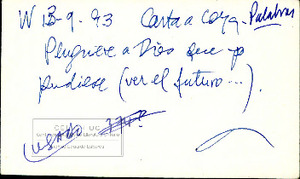 W 13-9. 93 Carta a Goya. Palabras
Plugniere a Dios que yo
pudiese (ver el futuro...).
USADO